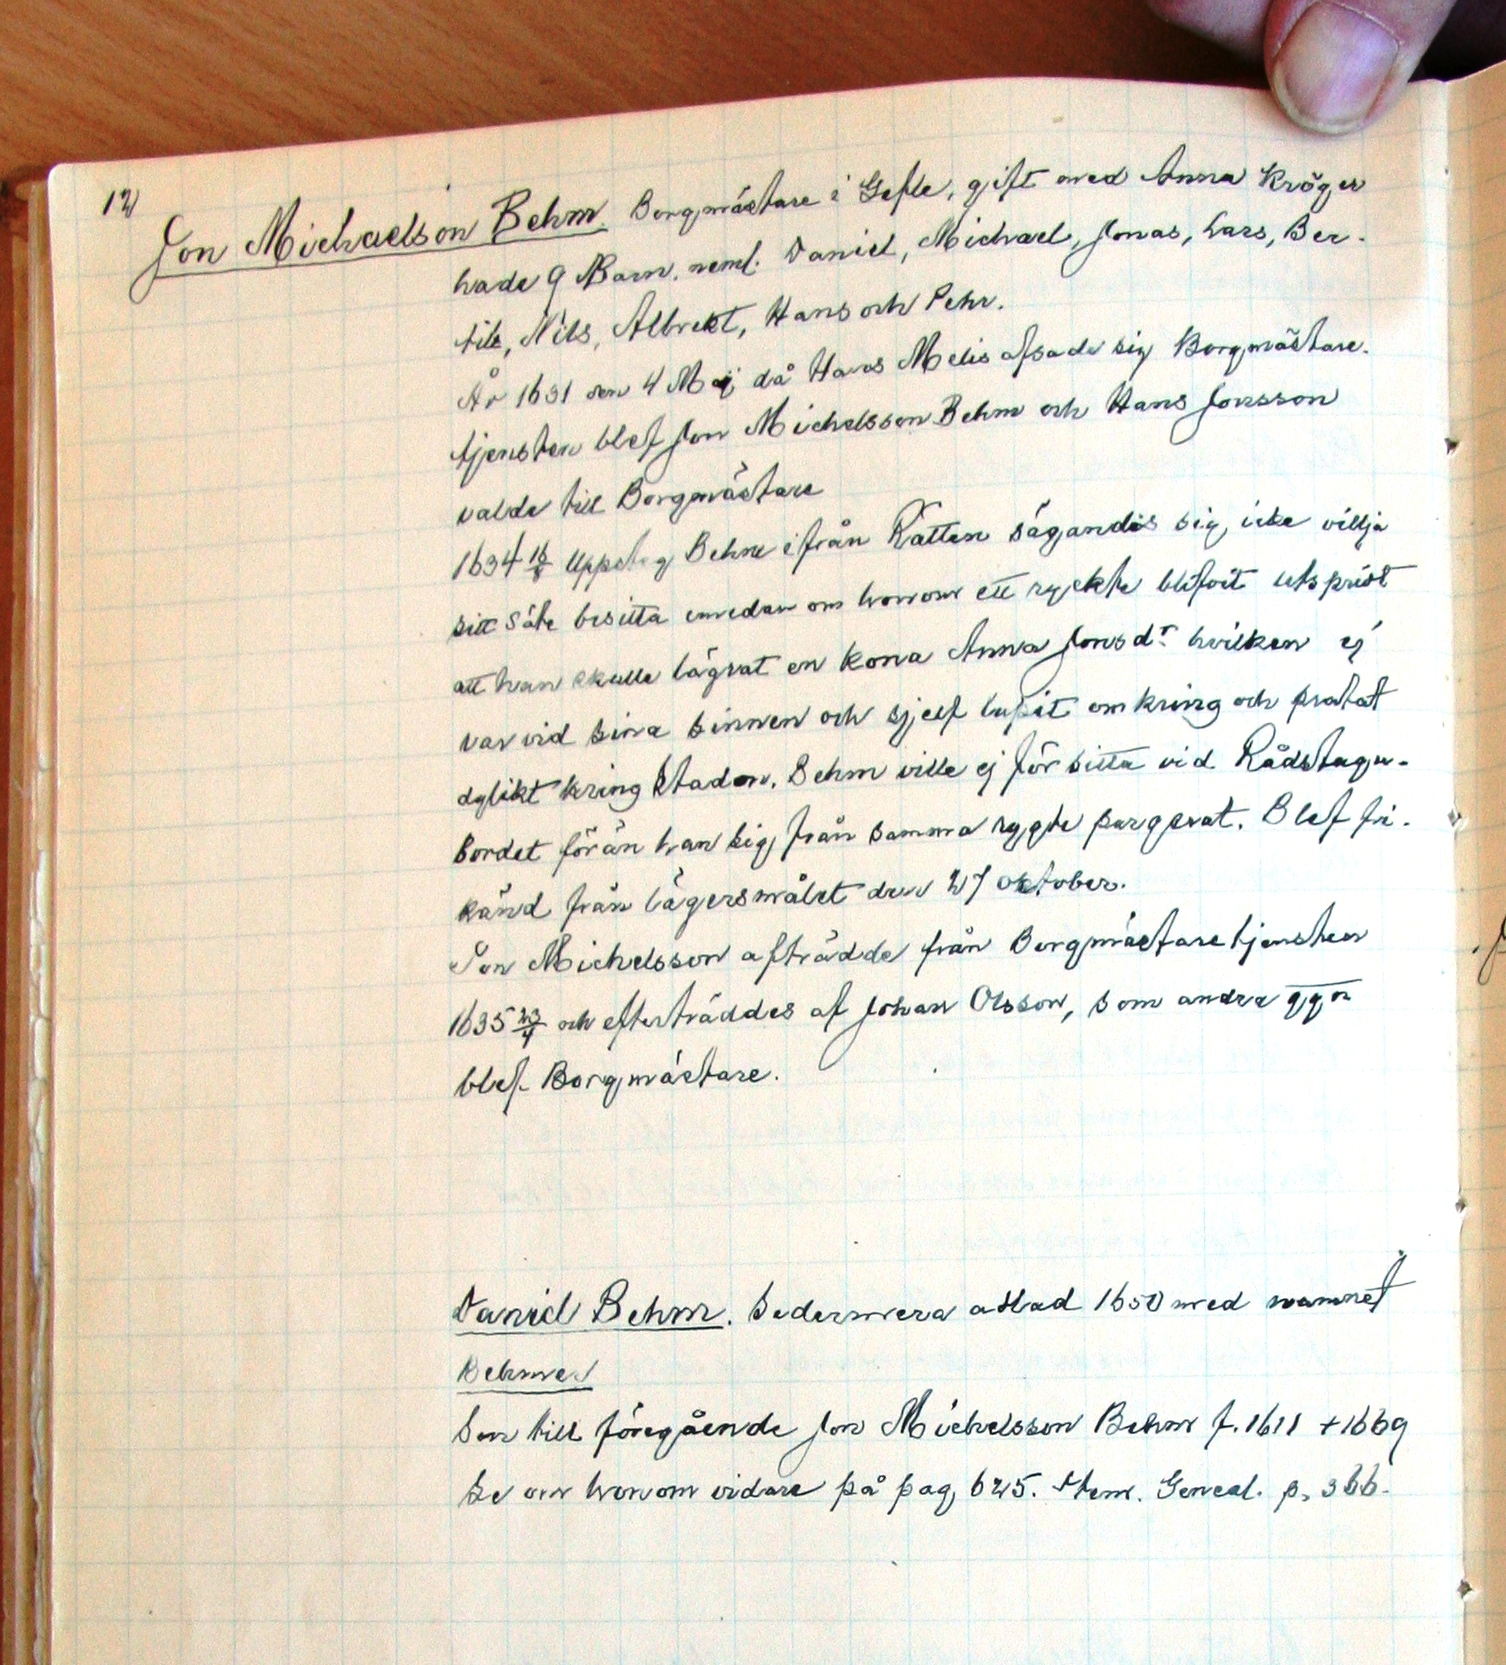 12
Jon Michaelson Behm. Borgmästare i Gefle, gift med Anna Kröger
hade 9 Barn. neml. Daniel, Michael, Jonas, Lars, Ber-
til, Nils, Albrekt, Hans och Pehr.
År 1631 den 4 Maj då Hans Melis afsade sig Borgmästare-
tjensten blef Jon Michelsson Behm och Hans Jonsson
valde till Borgmästare
1634 18/8 Uppsteg Behm ifrån Rätten sägandes sig icke villja
sitt säte besitta emedan om honom ett ryckte blifvit utspridt
att han skulle lägrat en kona Anna Jonsdr hvilken ej
var vid sina sinnen och sjelf lupit omkring och pratat
dylikt kring Staden. Behm ville ej för sitta vid Rådstugu-
bordet förän han sig från samma rygte purgerat. Blef fri-
känd från lägersmålet den 27 oktober.
Jon Michelsson afträdde från Borgmästaretjensten
1635 23/4 och efterträddes af Johan Olsson, som andra ggn
blef Borgmästare.
Daniel Behm. Sedermera adlad 1650 med namnet
Behmer
Son till föregående Jon Michelsson Behm f. 1611 +1669
Se om honom vidare på pag 625. Stem. Geneal. p. 366.